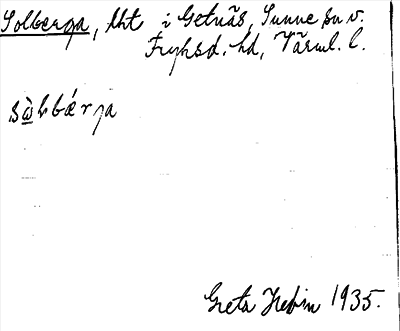 Solberga, lht i Getnäs, Sunne sn v.
Fryksd. hd, Värml. l.
Greta Hebin 1935.